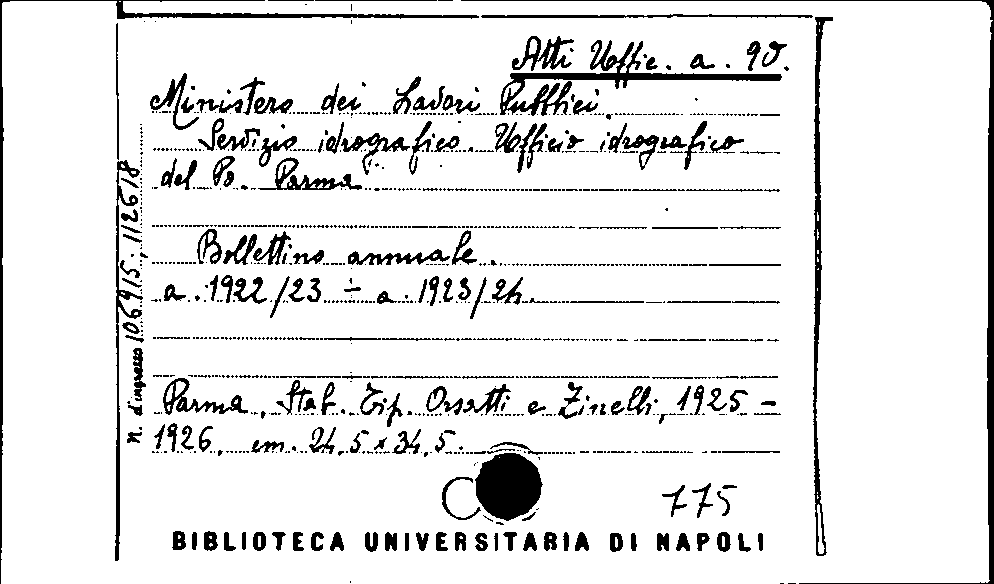 Atti Uffic. a. 90.
Ministero dei Lavori Pubblici.
Servizio idrografico. Ufficio idrografico
del Po. Parma.
Bollettino annuale.
a. 1922/23 ÷ a. 1923/24.
Parma, Stab. Tip. Orsatti e Zinelli, 1925 -
1926, cm. 24,5 x 34,5.
775
BIBLIOTECA UNIVERSITARIA DI NAPOLI
n. d'ingresso 106915; 112618